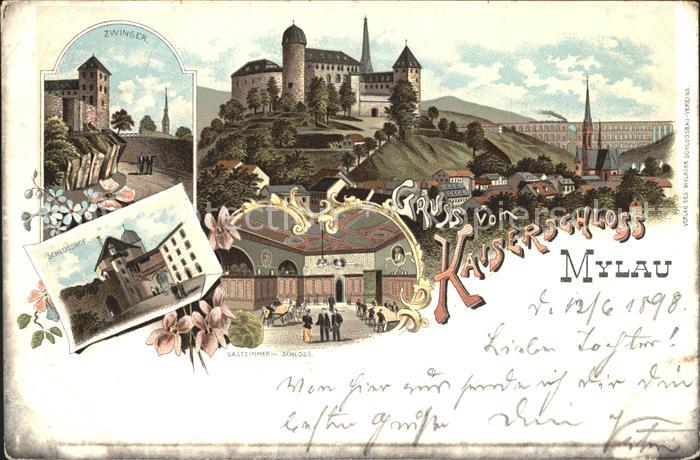 ZWINGER.
SCHLOSSHOF
GASTZIMMER im SCHLOSS.
GRUSS VOM
KAISERSCHLOSS
MYLAU
VERLAG DES MYLAUER SCHLOSSBAU-VEREINS.
d. 12/6 1898.
Liebe Tochter!
Von hier aus sende ich dir die
besten Grüße Dein
Vater